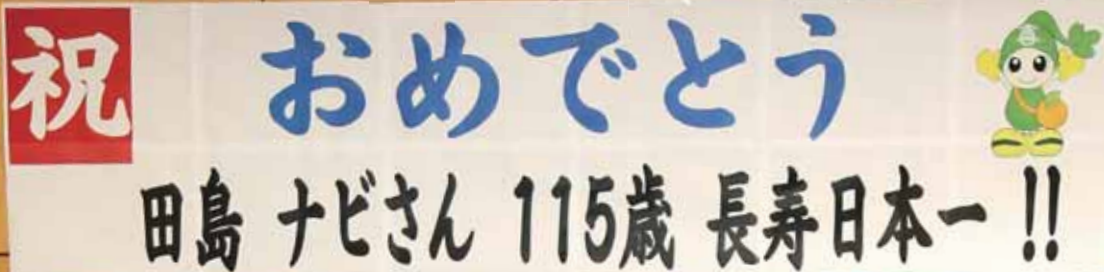 祝 おめでとう
田島 ナビさん 115歳 長寿日本一 !!